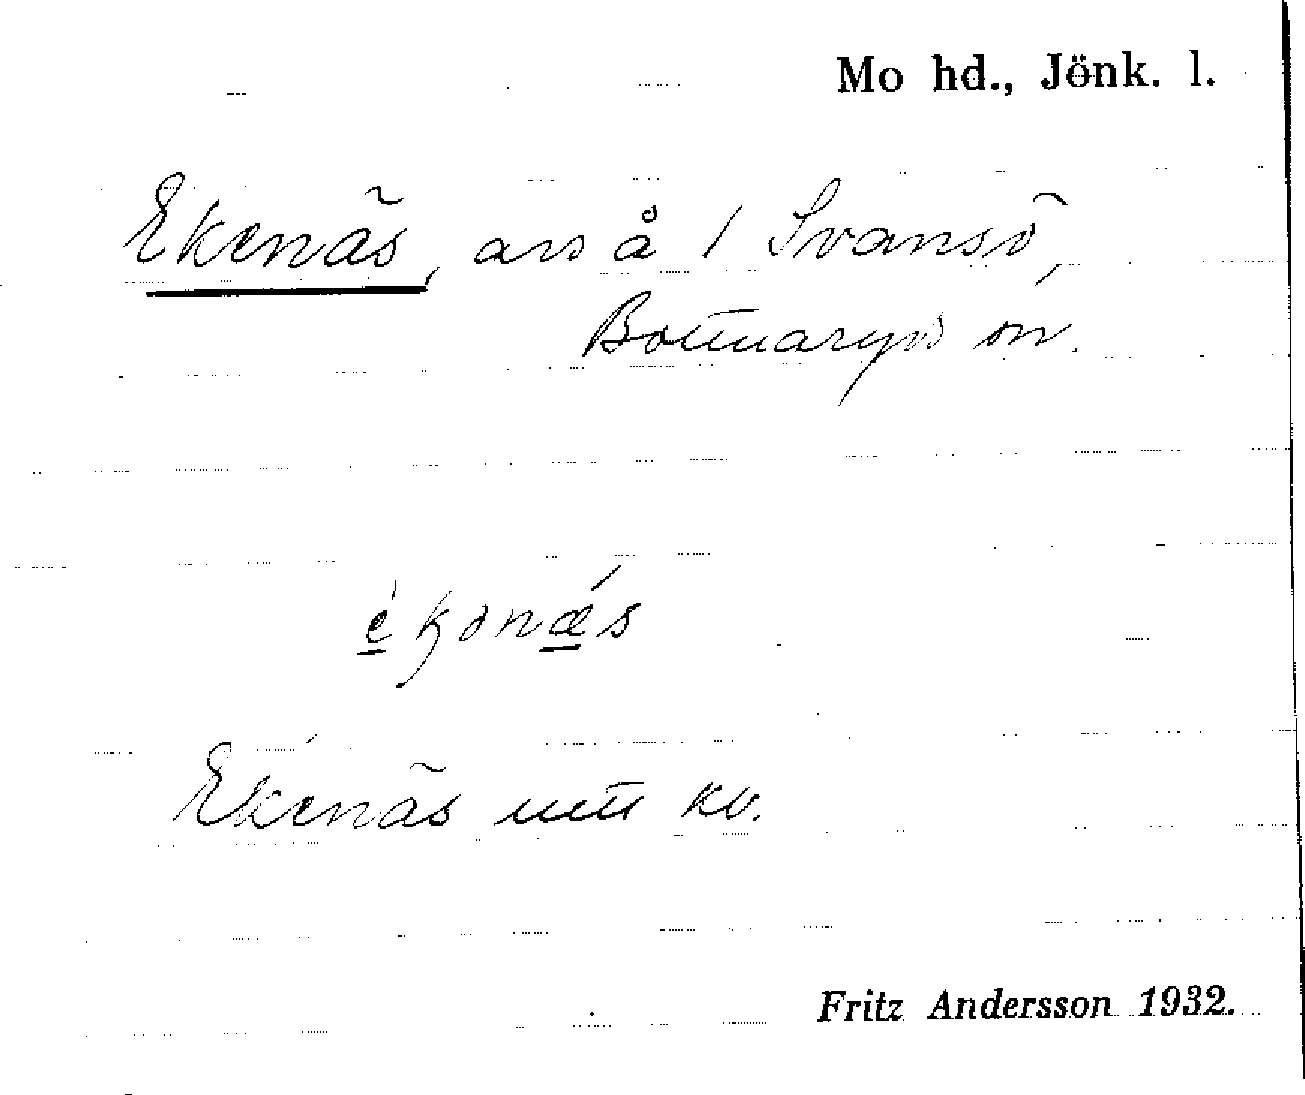 Mo hd., Jönk. l.
Ekenäs, avs å 1 Svansö,
Bottnaryds sn.
Ekenäs utt kv.
Fritz Andersson 1932.